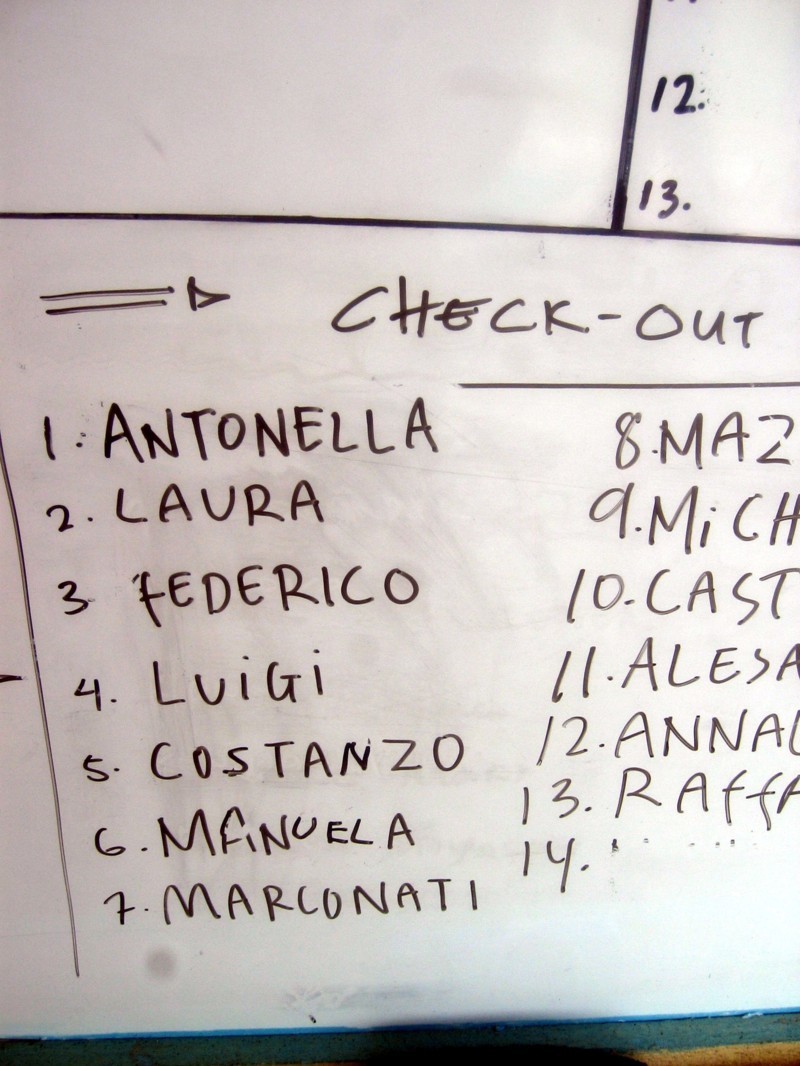 12.
13.
CHECK-OUT
1. ANTONELLA
2. LAURA
3 FEDERICO
4. LUiGi
5. COSTANZO
6. MANUELA
7. MARCONATI
8. MAZ
9. MiCH
10. CAST
11. ALESA
12. ANNAL
13. RAffA
14.